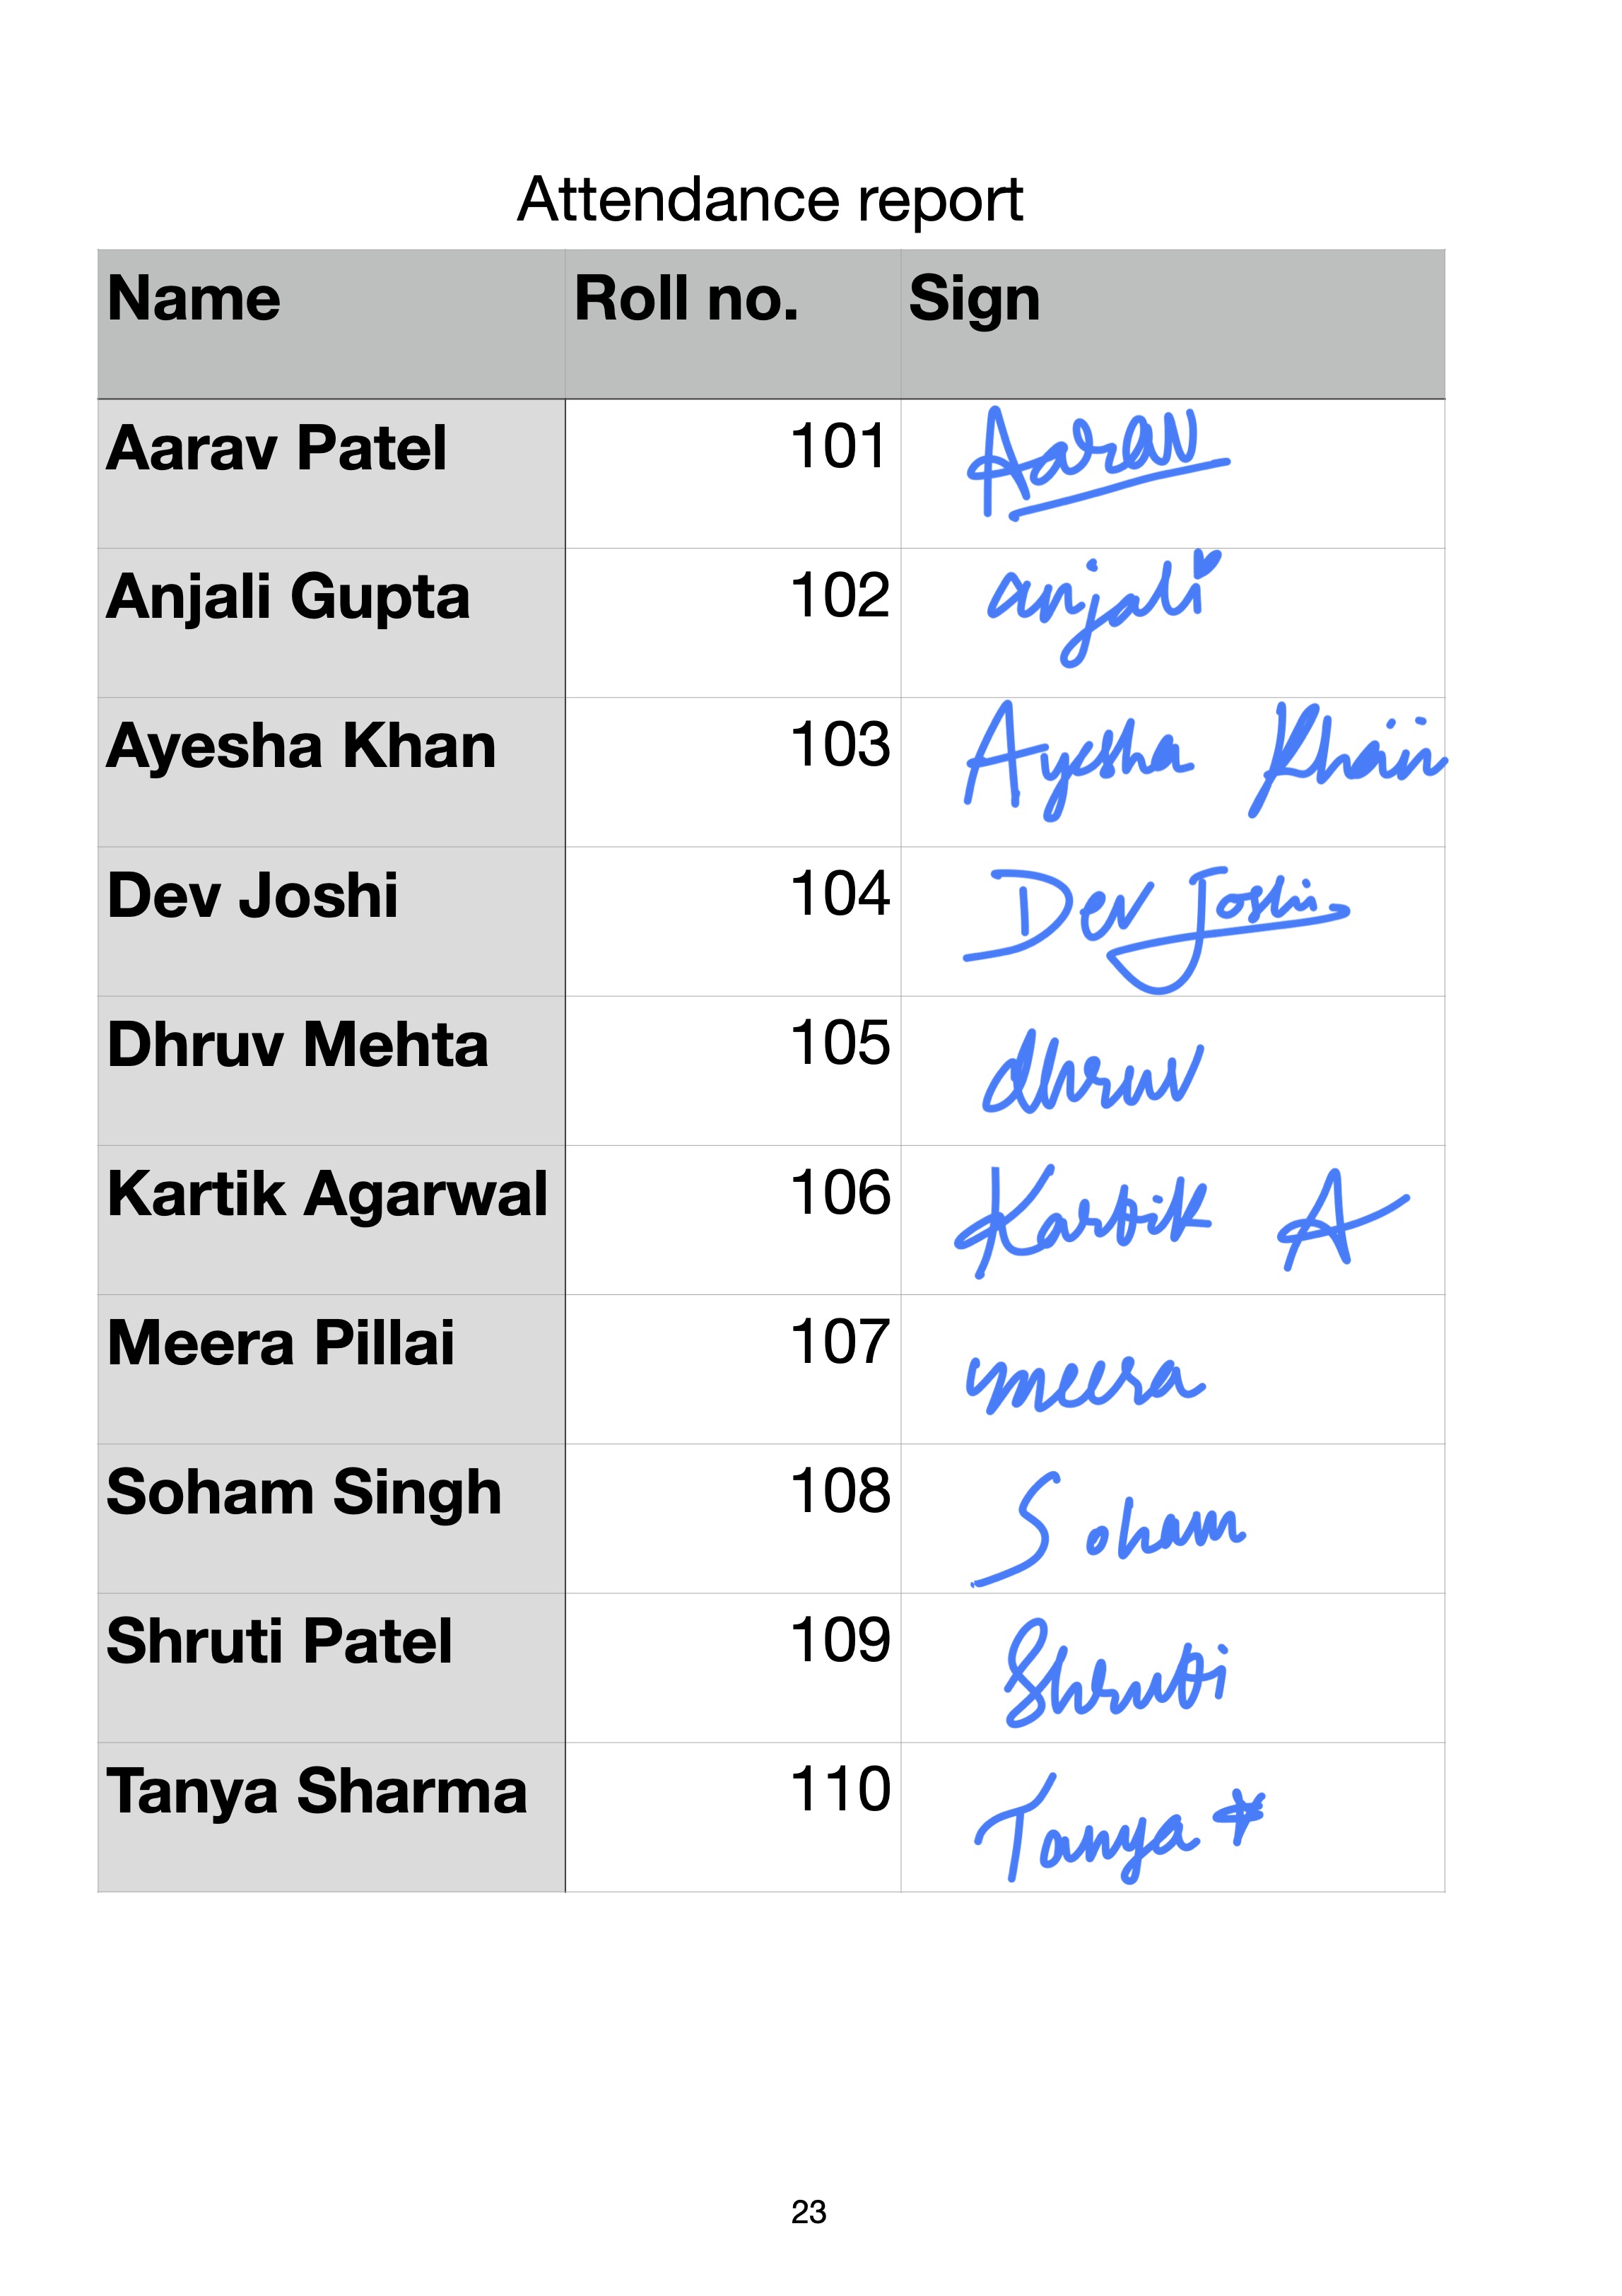 Attendance report
Name Roll no. Sign
Aarav Patel 101 Aarav
Anjali Gupta 102 anjali
Ayesha Khan 103 Ayesha Khan
Dev Joshi 104 Dev Joshi
Dhruv Mehta 105 dhruv
Kartik Agarwal 106 Kartik A
Meera Pillai 107 meera
Soham Singh 108 Soham
Shruti Patel 109 Shruti
Tanya Sharma 110 Tanya
23